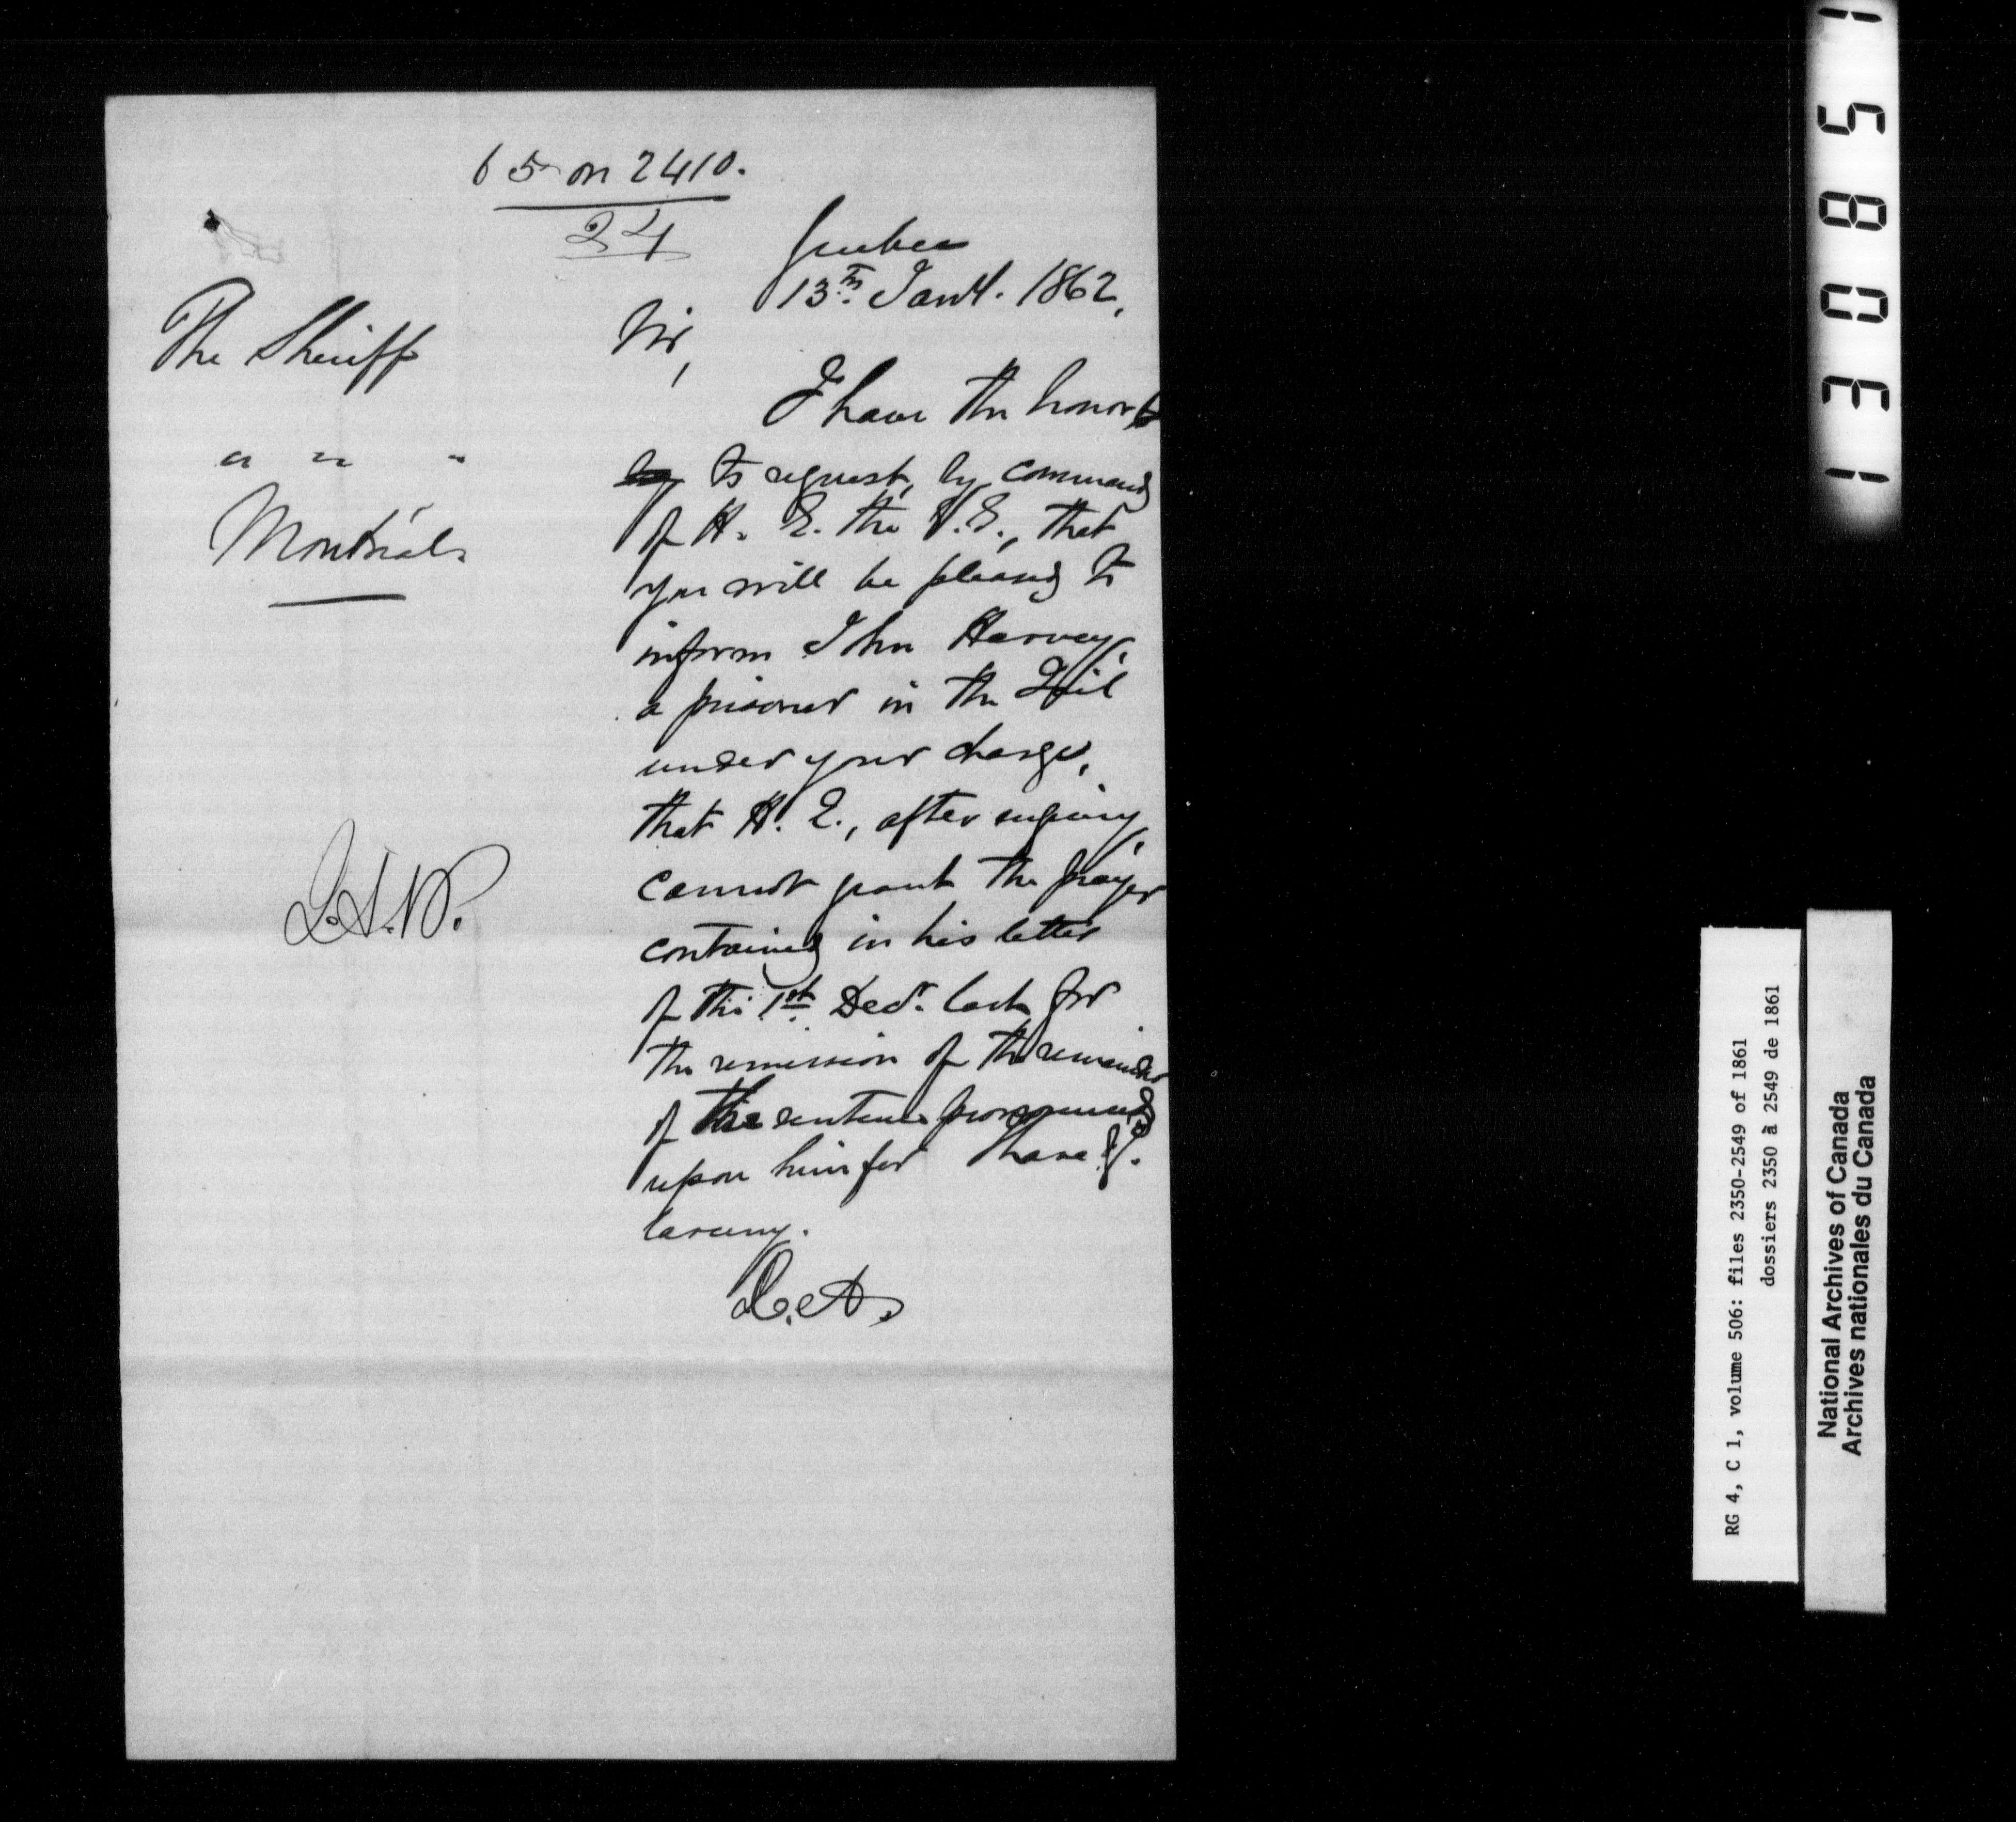 65 on 2410.
24
Quebec
13th. Jany. 1862.
The Sheriff
" " "
Montréal.
Sir,
I have the honor to
to request, by command
of H. E. the G. G., that
you will be pleased to
inform John Harvey,
a prisoner in the Gail
under your charge,
that H. E., after enquiry,
cannot grant the prayer
contained in his letter
of the 1st. Decr. last for
the remission of the remainder
of the sentence pronounced
upon him for
larceny.
I have &c.
C. A.
RG 4, C 1, volume 506: files 2350-2549 of 1861
dossiers 2350 à 2549 de 1861
National Archives of Canada
Archives nationales du Canada
130851